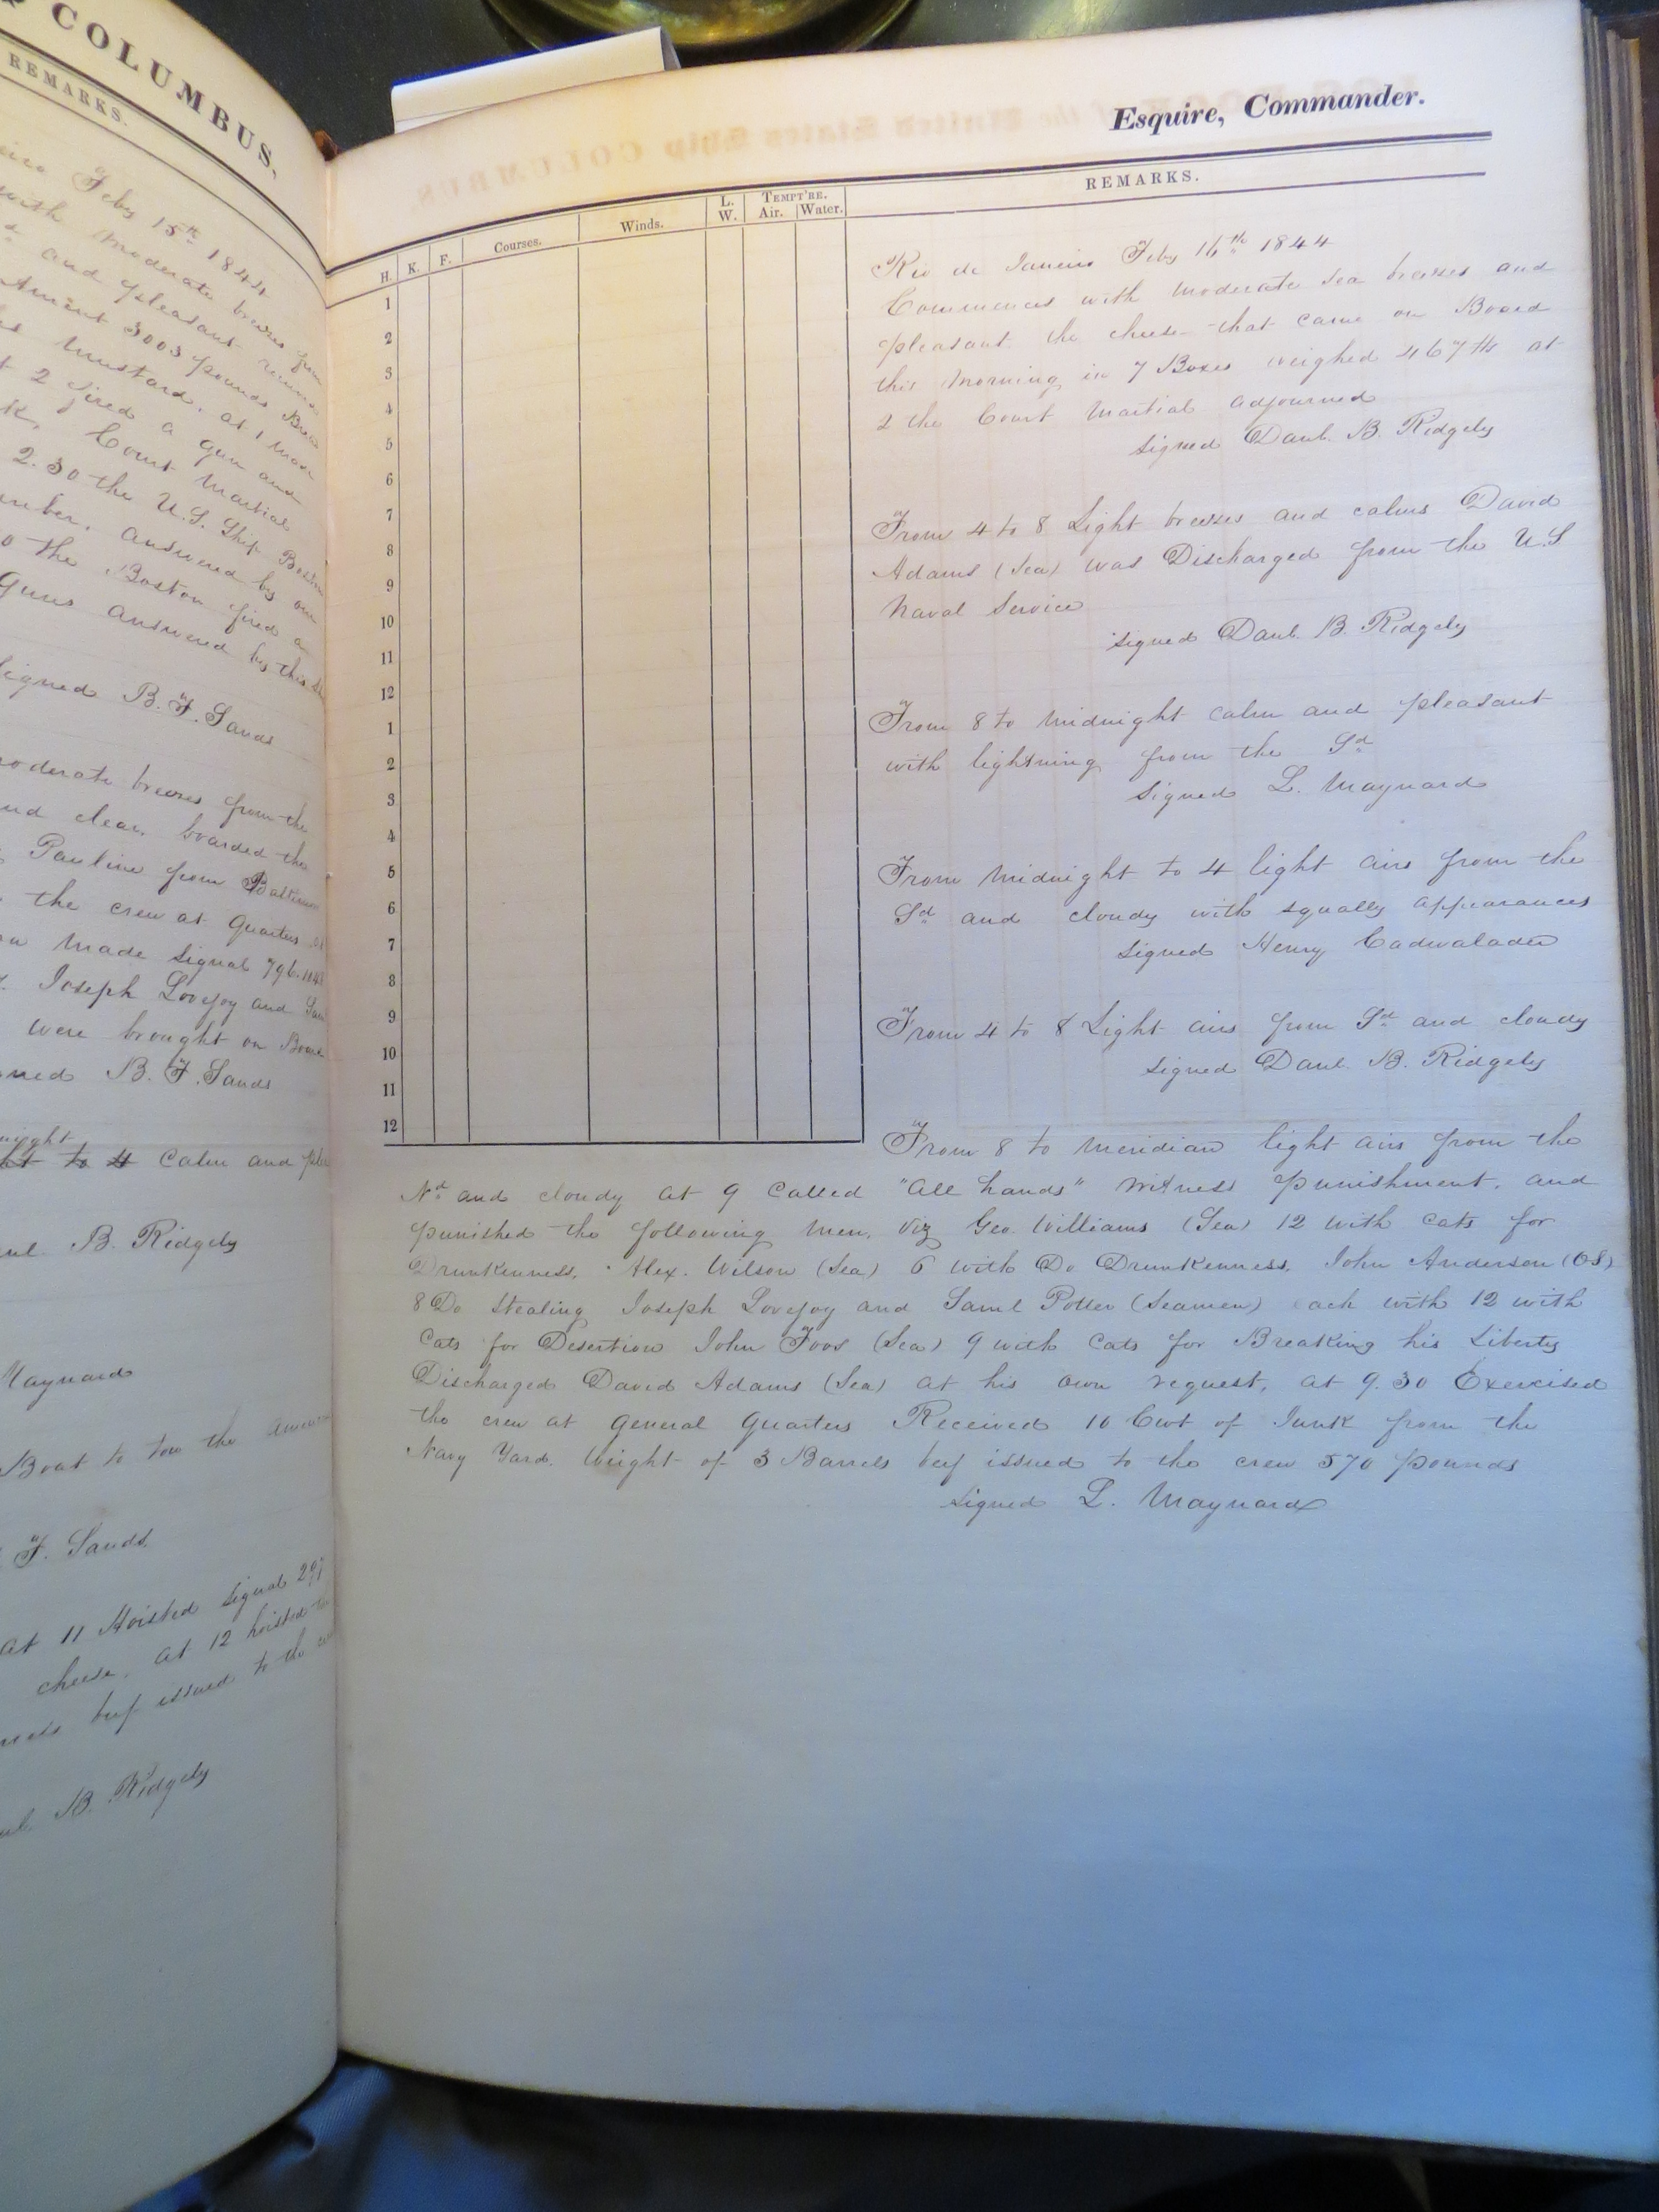 COLUMBUS.
REMARKS.
Feby 15th 1844
with moderate breezes from
and pleasant
3003 pounds
mustard. at 1
2 fired a gun and
Court Martial
2.30 the U.S. Ship Boston
answered by
the Boston fired a
guns answered by this
signed B. F. Sands
moderate breezes from the
and clear. boarded the
Pauline from Baltimore
the crew at quarters
made signal 796.
Joseph Lovejoy and
were brought on Board
signed B. F. Sands
to 4 Calm and
B. Ridgely
Maynard
Boat to tow the
F. Sands
at 11 Hoisted signal
cheese. at 12 hoisted
beef issued to the
B. Ridgely
Esquire, Commander.
H. K. F. Courses. Winds. L. W. TEMPT'RE. Air. Water. REMARKS.
1
2
3
4
5
6
7
8
9
10
11
12
1
2
3
4
5
6
7
8
9
10
11
12
Rio de Janeiro Feby 16th 1844
Commences with moderate sea breezes and
pleasant the cheese that came on Board
this morning in 7 Boxes weighed 467 lbs at
2 the Court Martial adjourned
signed Danl. B. Ridgely
From 4 to 8 Light breezes and calms David
Adams (Sea) was Discharged from the U.S
Naval Service
signed Danl. B. Ridgely
From 8 to midnight calm and pleasant
with lightning from the Sd
signed L. Maynard
From midnight to 4 light airs from the
Sd and cloudy with squally appearances
signed Henry Cadwalader
From 4 to 8 Light airs from Sd and cloudy
signed Danl. B. Ridgely
From 8 to meridian light airs from the
Nd and cloudy at 9 called "all hands" witness punishment. and
punished the following men, viz Geo. Williams (Sea) 12 with cats for
Drunkenness, Alex. Wilson (Sea) 6 with Do Drunkenness, John Anderson (OS)
8 Do Stealing Joseph Lovejoy and Saml Potter (Seamen) each with 12 with
Cats for Desertion John Foos (Sea) 9 with Cats for Breaking his Liberty
Discharged David Adams (Sea) at his own request, at 9.30 Exercised
the crew at general quarters Received 10 Cwt of Junk from the
Navy Yard. Weight of 3 Barrels beef issued to the crew 570 pounds
signed L. Maynard